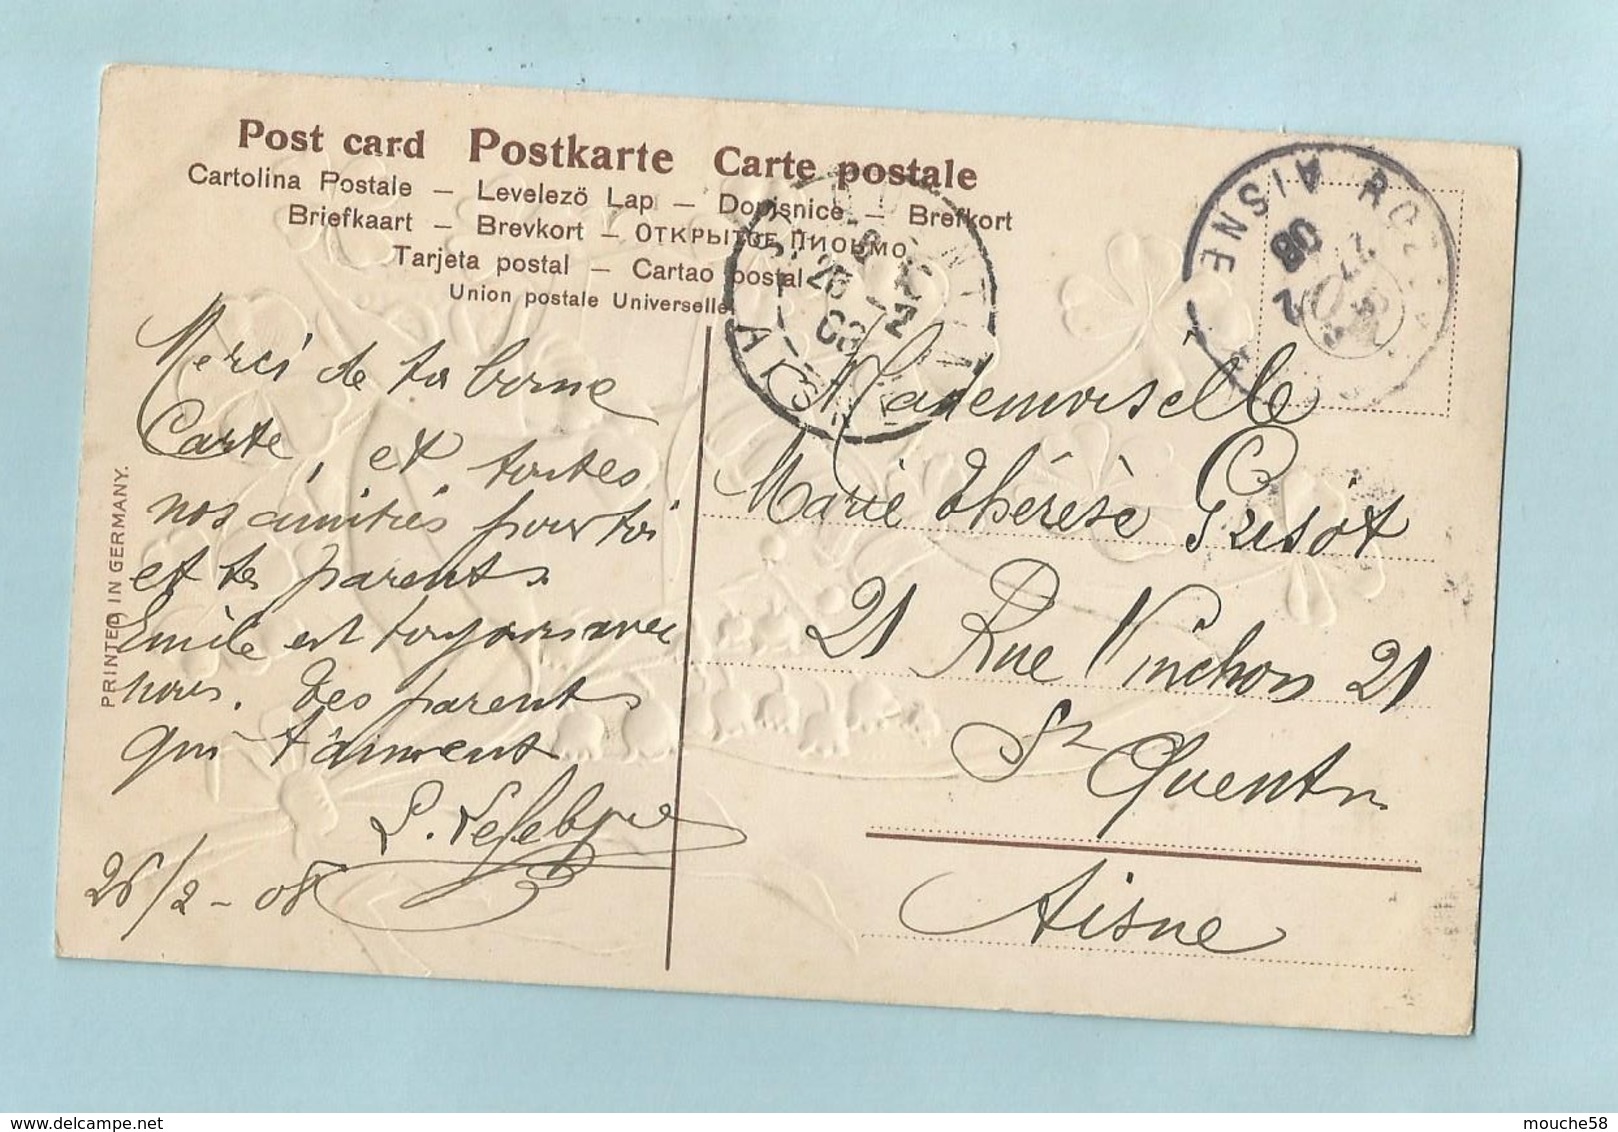 Post card Postkarte Carte postale
Cartolina Postale – Levelező Lap – Dopisnice – Brefkort
Briefkaart – Brevkort – ОТКРЫТОЕ ПИСЬМО
Tarjeta postal – Cartao postal
Union postale Universelle
PRINTED IN GERMANY.
Merci de ta bonne
Carte, et toutes
nos amitiés pour toi
et tes parents.
Emile est toujours avec
nous. Des parents
qui t'aiment
L. Lefebvre
26/2-08
Mademoiselle
Marie Thérèse Grisot
21 Rue Vinchon 21
St Quentin
Aisne
AISNE
08
26
08
AISNE
mouche58